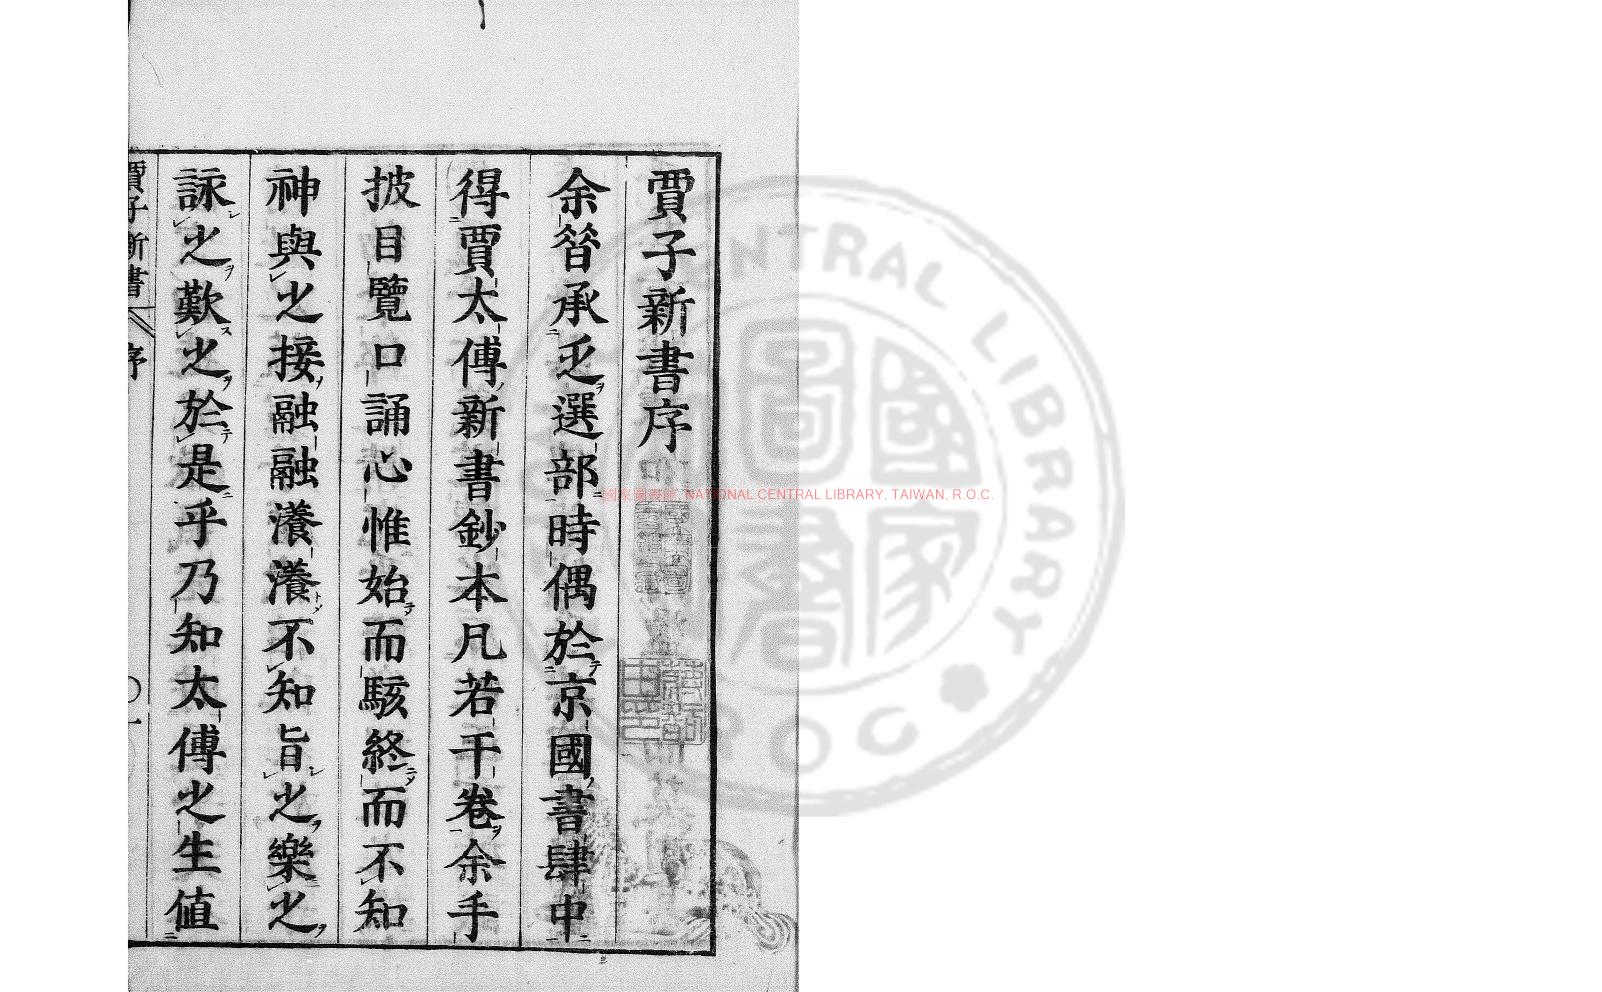 賈子新書序
余曾承乏選部時偶於京國書肆中
得賈太傅新書鈔本凡若干卷余手
披目覽口誦心惟始而駭終而不知
神與之接融融瀁瀁不知旨之樂之
詠之歎之於是乎乃知太傅之生值
賈子新書
序
一
國家圖書館, NATIONAL CENTRAL LIBRARY, TAIWAN, R.O.C.
CENTRAL LIBRARY
R O C
國家圖書